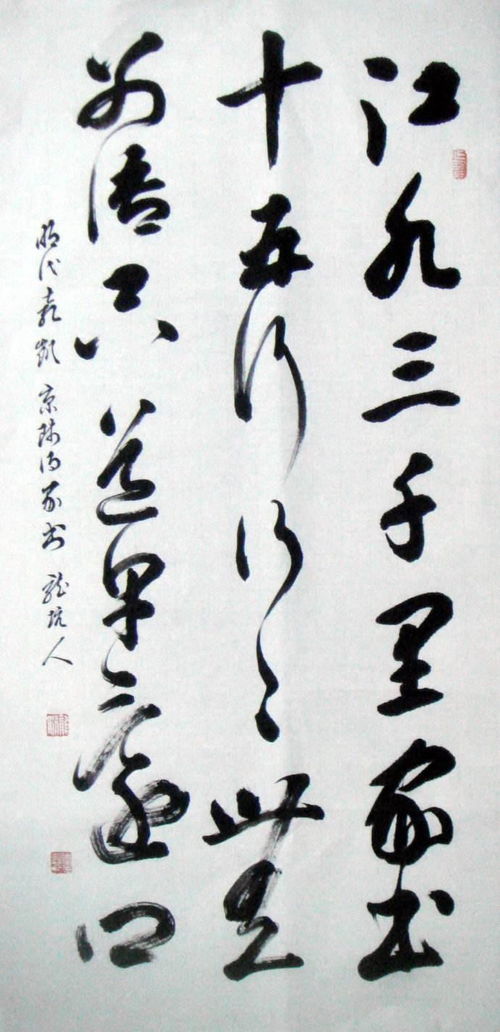 江水三千里家書
十五行行〻無
別語只道早還鄉
明代袁凱京師得家書 龍坑人